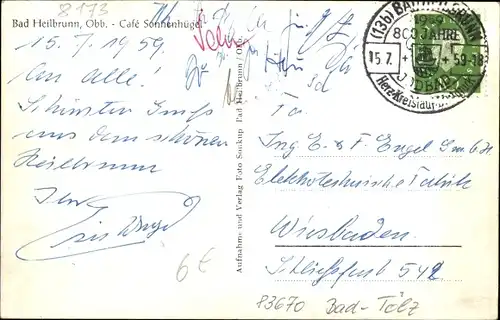 8173
Bad Heilbrunn, Obb. - Café Sonnenhügel
15.7.1959
An alle!
Schönsten Gruß
aus dem schönen
Heilbrunn
6€
Aufnahme und Verlag Foto Soukup Bad Heilbrunn/Obb.
(13b)
1959
800 JAHRE
15.7. 59-18
JODBAD
Fa.
Ing. E. & F. Engel G.m.b.H.
Elektrotechnische Fabrik
Wiesbaden
Schließfach 542
83670 Bad-Tölz